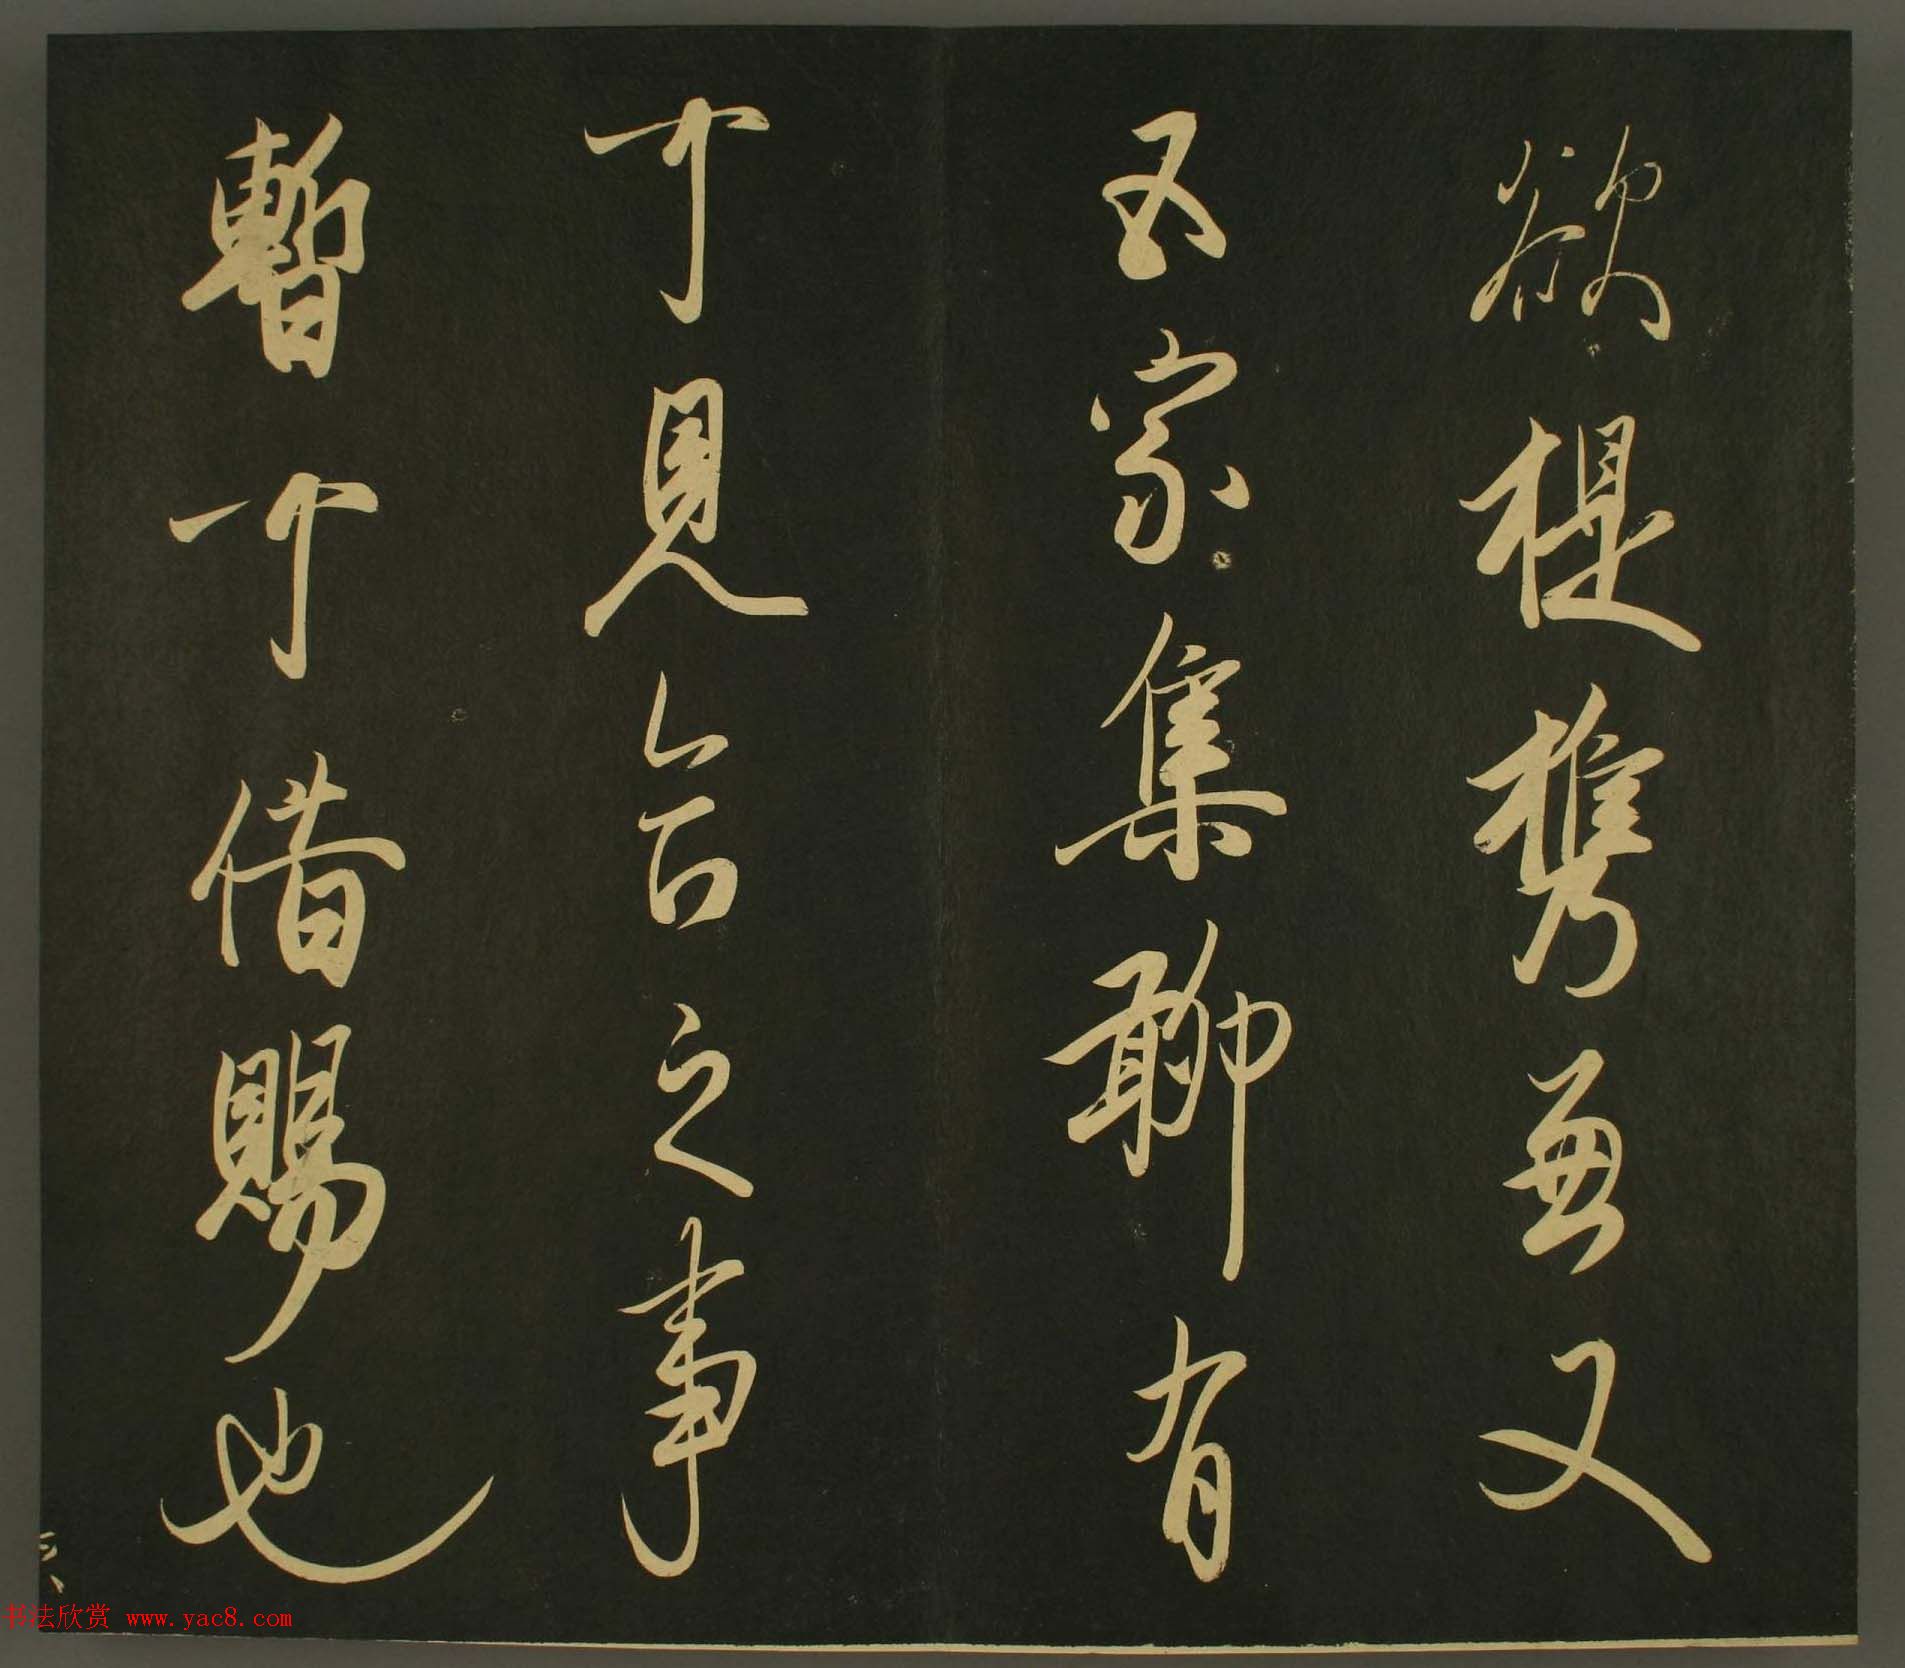 欲提携兼又
五家集聊有
可見合之事
暫可借賜也
书法欣赏 www.yac8.com